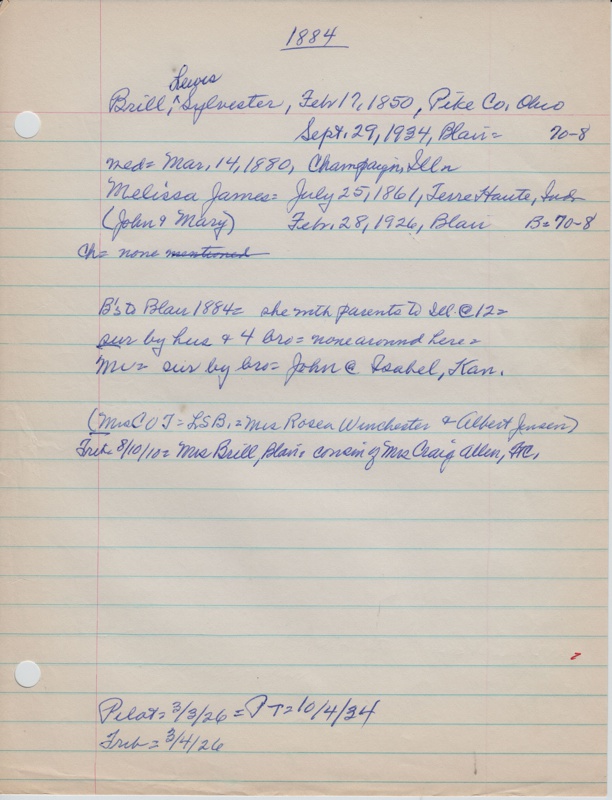 1884
Lewis
Brill, ^ Sylvester, Feb 17, 1850, Pike Co, Ohio
Sept. 29, 1934, Blair= 70-8
med= Mar. 14, 1880, Champaign, Ill
Melissa James= July 25, 1861, Terre Haute, Ind
(John & Mary) Feb. 28, 1926, Blair B= 70-8
Ch= none mentioned
B's to Blair 1884= she with parents to Ill @ 12=
sur by hus & 4 bro= none around here=
Mr= sur by bro= John @ Isabel, Kan.
(Mrs C O T= LSB,= Mrs Rosea Winchester & Albert Jensen)
Trib 8/10/10= Mrs Brill, Blair, cousin of Mrs Craig Allen, FtC.
Pilot= 3/3/26 = PT=10/4/34
Trib= 3/4/26